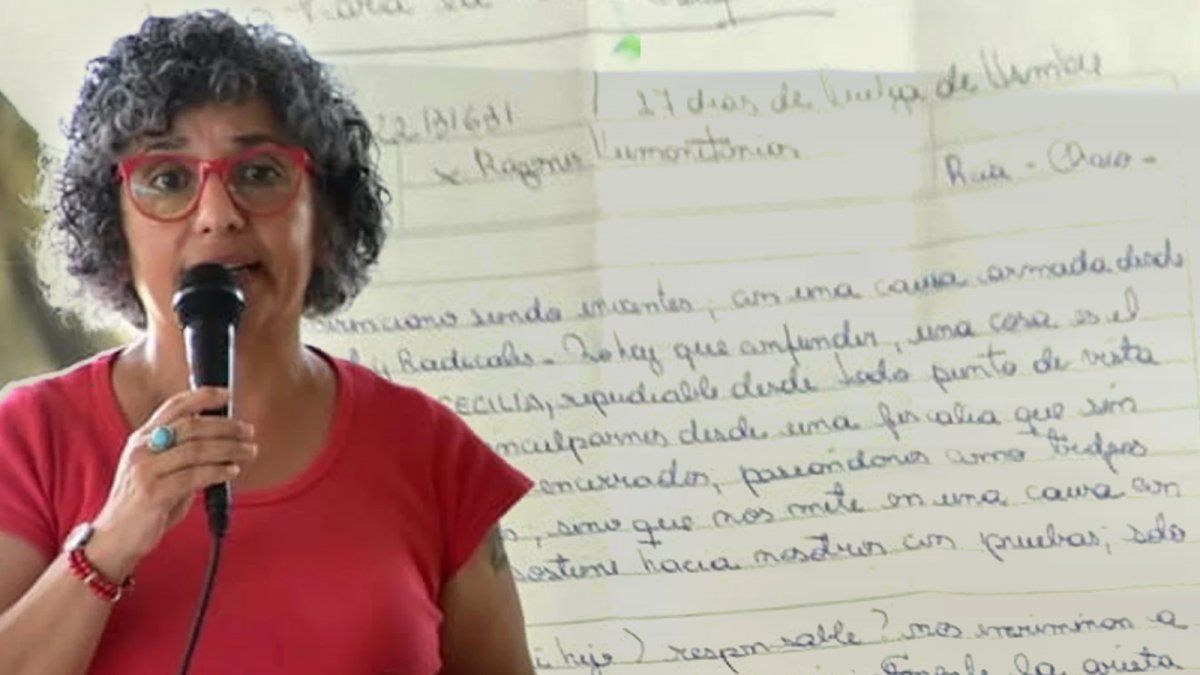 22131631
17 dias de huelga de Hambre
x Razones Humanitarias
Rcia - Chaco -
siendo inocentes, con una causa armada desde
Radicales - No hay que confundir, una cosa es el
CECILIA, repudiable desde todo punto de vista
inculparnos desde una fiscalia que sin
encerrados, pasandonos como
, sino que nos mete en una causa con
sostiene hacia nosotros con pruebas; solo
hijo) responsable? nos incriminan a
la